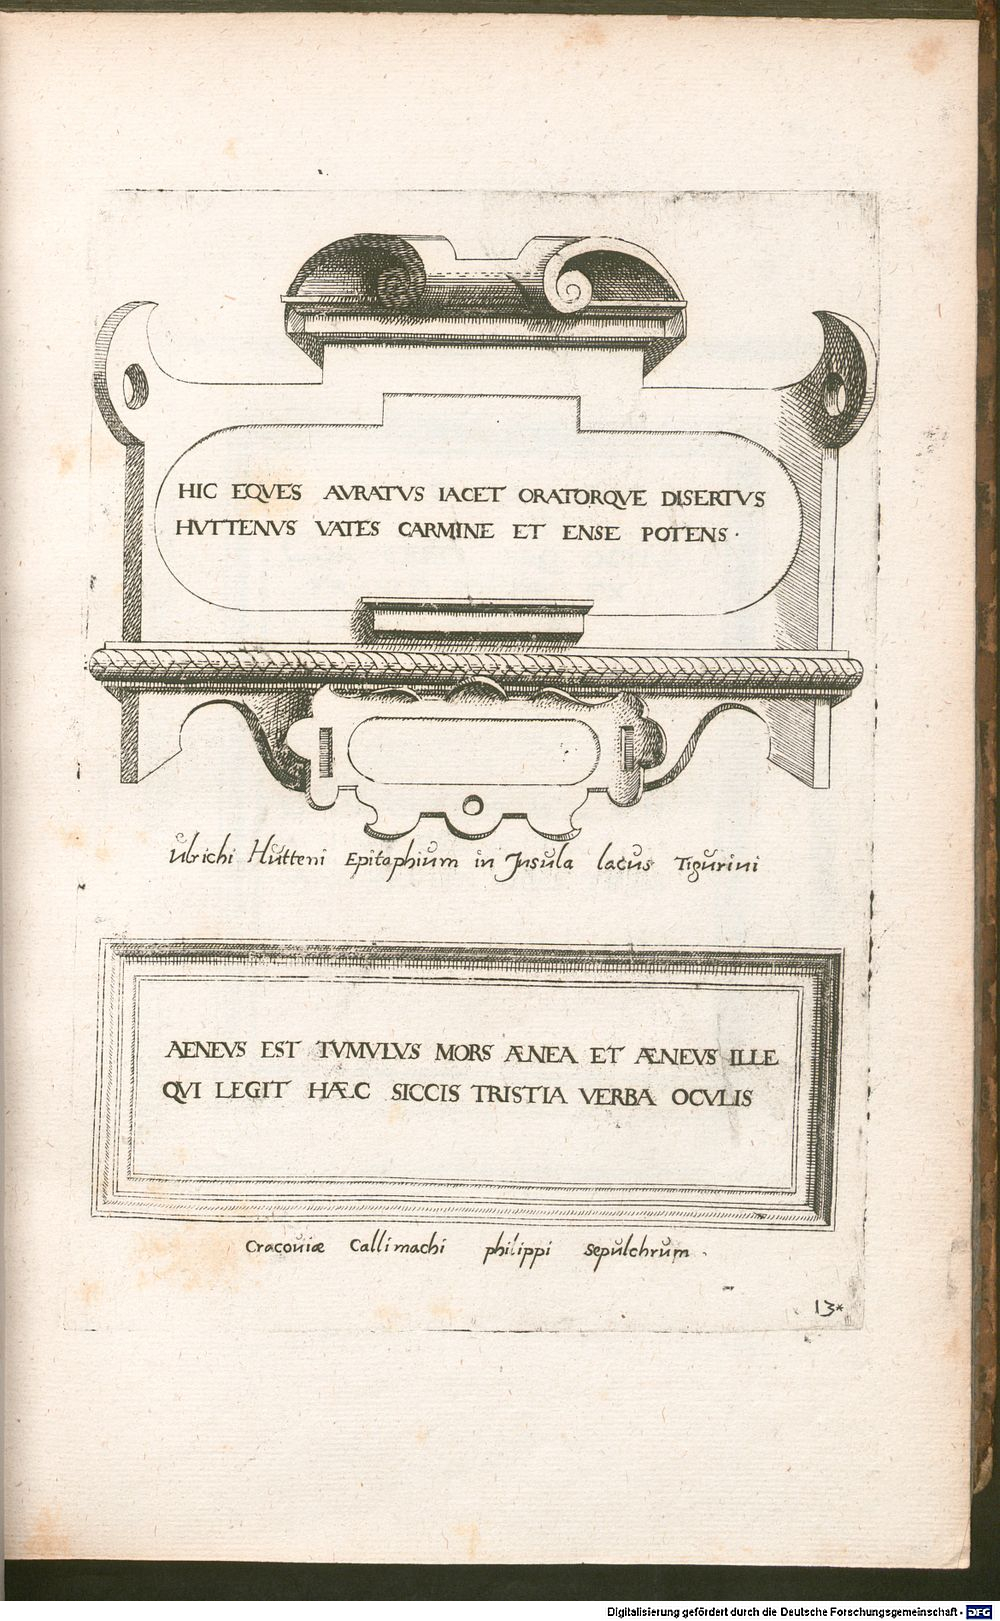 HIC EQVES AVRATVS IACET ORATORQVE DISERTVS
HVTTENVS VATES CARMINE ET ENSE POTENS ·
Ulrichi Hŭtteni Epitaphiŭm in Jnsŭla lacŭs Tigŭrini
AENEVS EST TVMVLVS MORS ÆNEA ET ÆNEVS ILLE
QVI LEGIT HÆC SICCIS TRISTIA VERBA OCVLIS
Cracoŭiæ Callimachi philippi sepŭlchrŭm .
13*
Digitalisierung gefördert durch die Deutsche Forschungsgemeinschaft - DFG